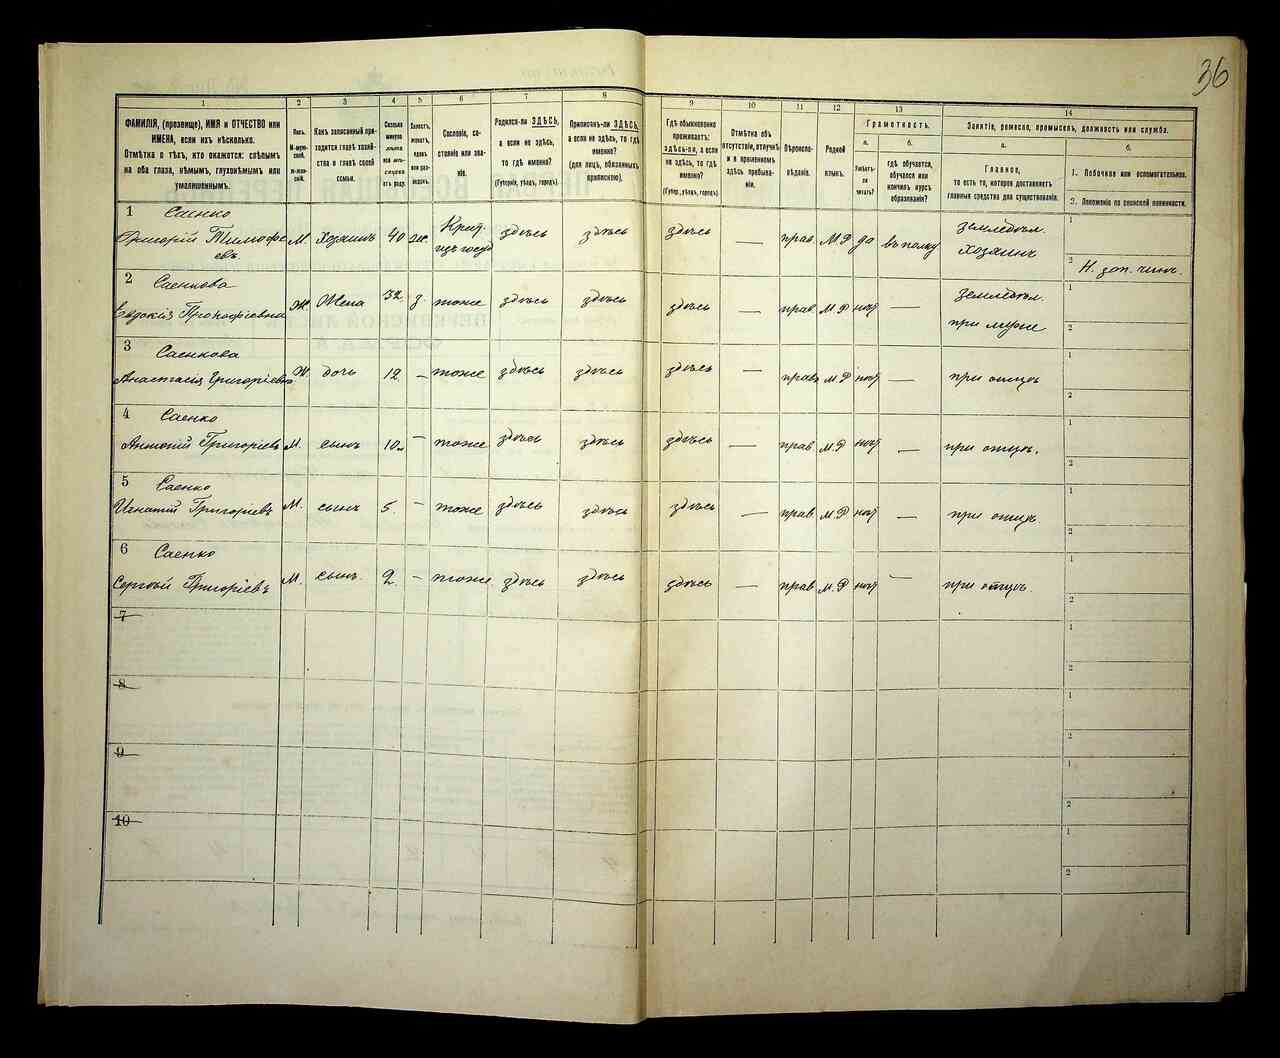 36
1 2 3 4 5 6 7 8 9 10 11 12 13 14
ФАМИЛІЯ, (прозвище), ИМЯ и ОТЧЕСТВО или
ИМЕНА, если ихъ нѣсколько.
Отмѣтка о тѣхъ, кто окажется: слѣпымъ
на оба глаза, нѣмымъ, глухонѣмымъ или
умалишеннымъ.
Полъ.
М-мужской.
Ж-женскій.
Какъ записанный приходится
главѣ хозяйства
и главѣ своей
семьи.
Сколько
минуло
лѣтъ
или мѣсяцевъ
отъ роду.
Холостъ,
женатъ,
вдовъ
или разведенъ.
Сословіе, состояніе
или званіе.
Родился-ли ЗДѢСЬ,
а если не здѣсь,
то гдѣ именно?
(Губернія, уѣздъ, городъ).
Приписанъ-ли ЗДѢСЬ,
а если не здѣсь, то гдѣ
именно?
(для лицъ, обязанныхъ
припискою).
Гдѣ обыкновенно
проживаетъ:
здѣсь-ли, а если
не здѣсь, то гдѣ
именно?
(Губер., уѣздъ, городъ).
Отмѣтка объ
отсутствіи, отлучкѣ
и о временномъ
здѣсь пребываніи.
Вѣроисповѣданіе.
Родной
языкъ.
Грамотность.
а.
Умѣетъ-ли
читать?
б.
гдѣ обучается,
обучался или
кончилъ курсъ
образованія?
Занятіе, ремесло, промыселъ, должность или служба.
а.
Главное,
то есть то, которое доставляетъ
главныя средства для существованія.
б.
1. Побочное или вспомогательное.
2. Положеніе по воинской повинности.
1 Саенко
Григорій Тимофеевъ. М. Хозяинъ 40 здѣсь здѣсь здѣсь — прав. М.Р да въ полку земледѣл. хозяинъ 1
2 Н. зап. чинъ.
2 Саенкова
Евдокія Прокофіевна Ж. Жена 32 з. тоже здѣсь здѣсь здѣсь — прав. М.Р нѣтъ — земледѣл. при мужѣ 1
2
3 Саенкова
Анастасія Григоріевна Ж дочь 12 — тоже здѣсь здѣсь здѣсь — прав. М.Р нѣтъ — при отцѣ 1
2
4 Саенко
Антоній Григоріевъ М. сынъ 10 — тоже здѣсь здѣсь здѣсь — прав. М.Р нѣтъ — при отцѣ. 1
2
5 Саенко
Игнатій Григоріевъ М. сынъ 5. — тоже здѣсь здѣсь здѣсь — прав. М.Р нѣтъ — при отцѣ 1
2
6 Саенко
Сергѣй Григоріевъ М. сынъ. 2. — тоже здѣсь здѣсь здѣсь — прав М.Р нѣтъ — при отцѣ. 1
2
7 1
2
8 1
2
9 1
2
10 1
2